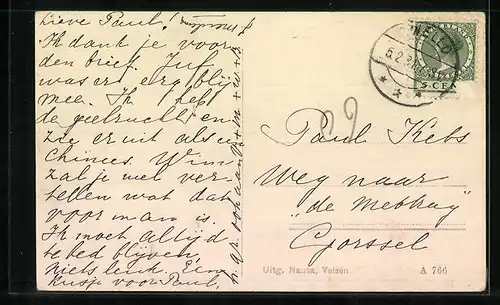 Lieve Paul!
Ik dank je voor
den brief. Juf
was er erg blij
mee. Ik heb
de geelzucht en
zie er uit als een
Chinees. Wim
zal je wel ver-
tellen wat dat
voor man is.
Ik moet altijd
te bed blijven,
niets leuk. Een
kusje voor Paul,
5 CEN
Paul Kebs
Weg naar
"de
Gorssel
Uitg. Nauta, Velsen.
A 766